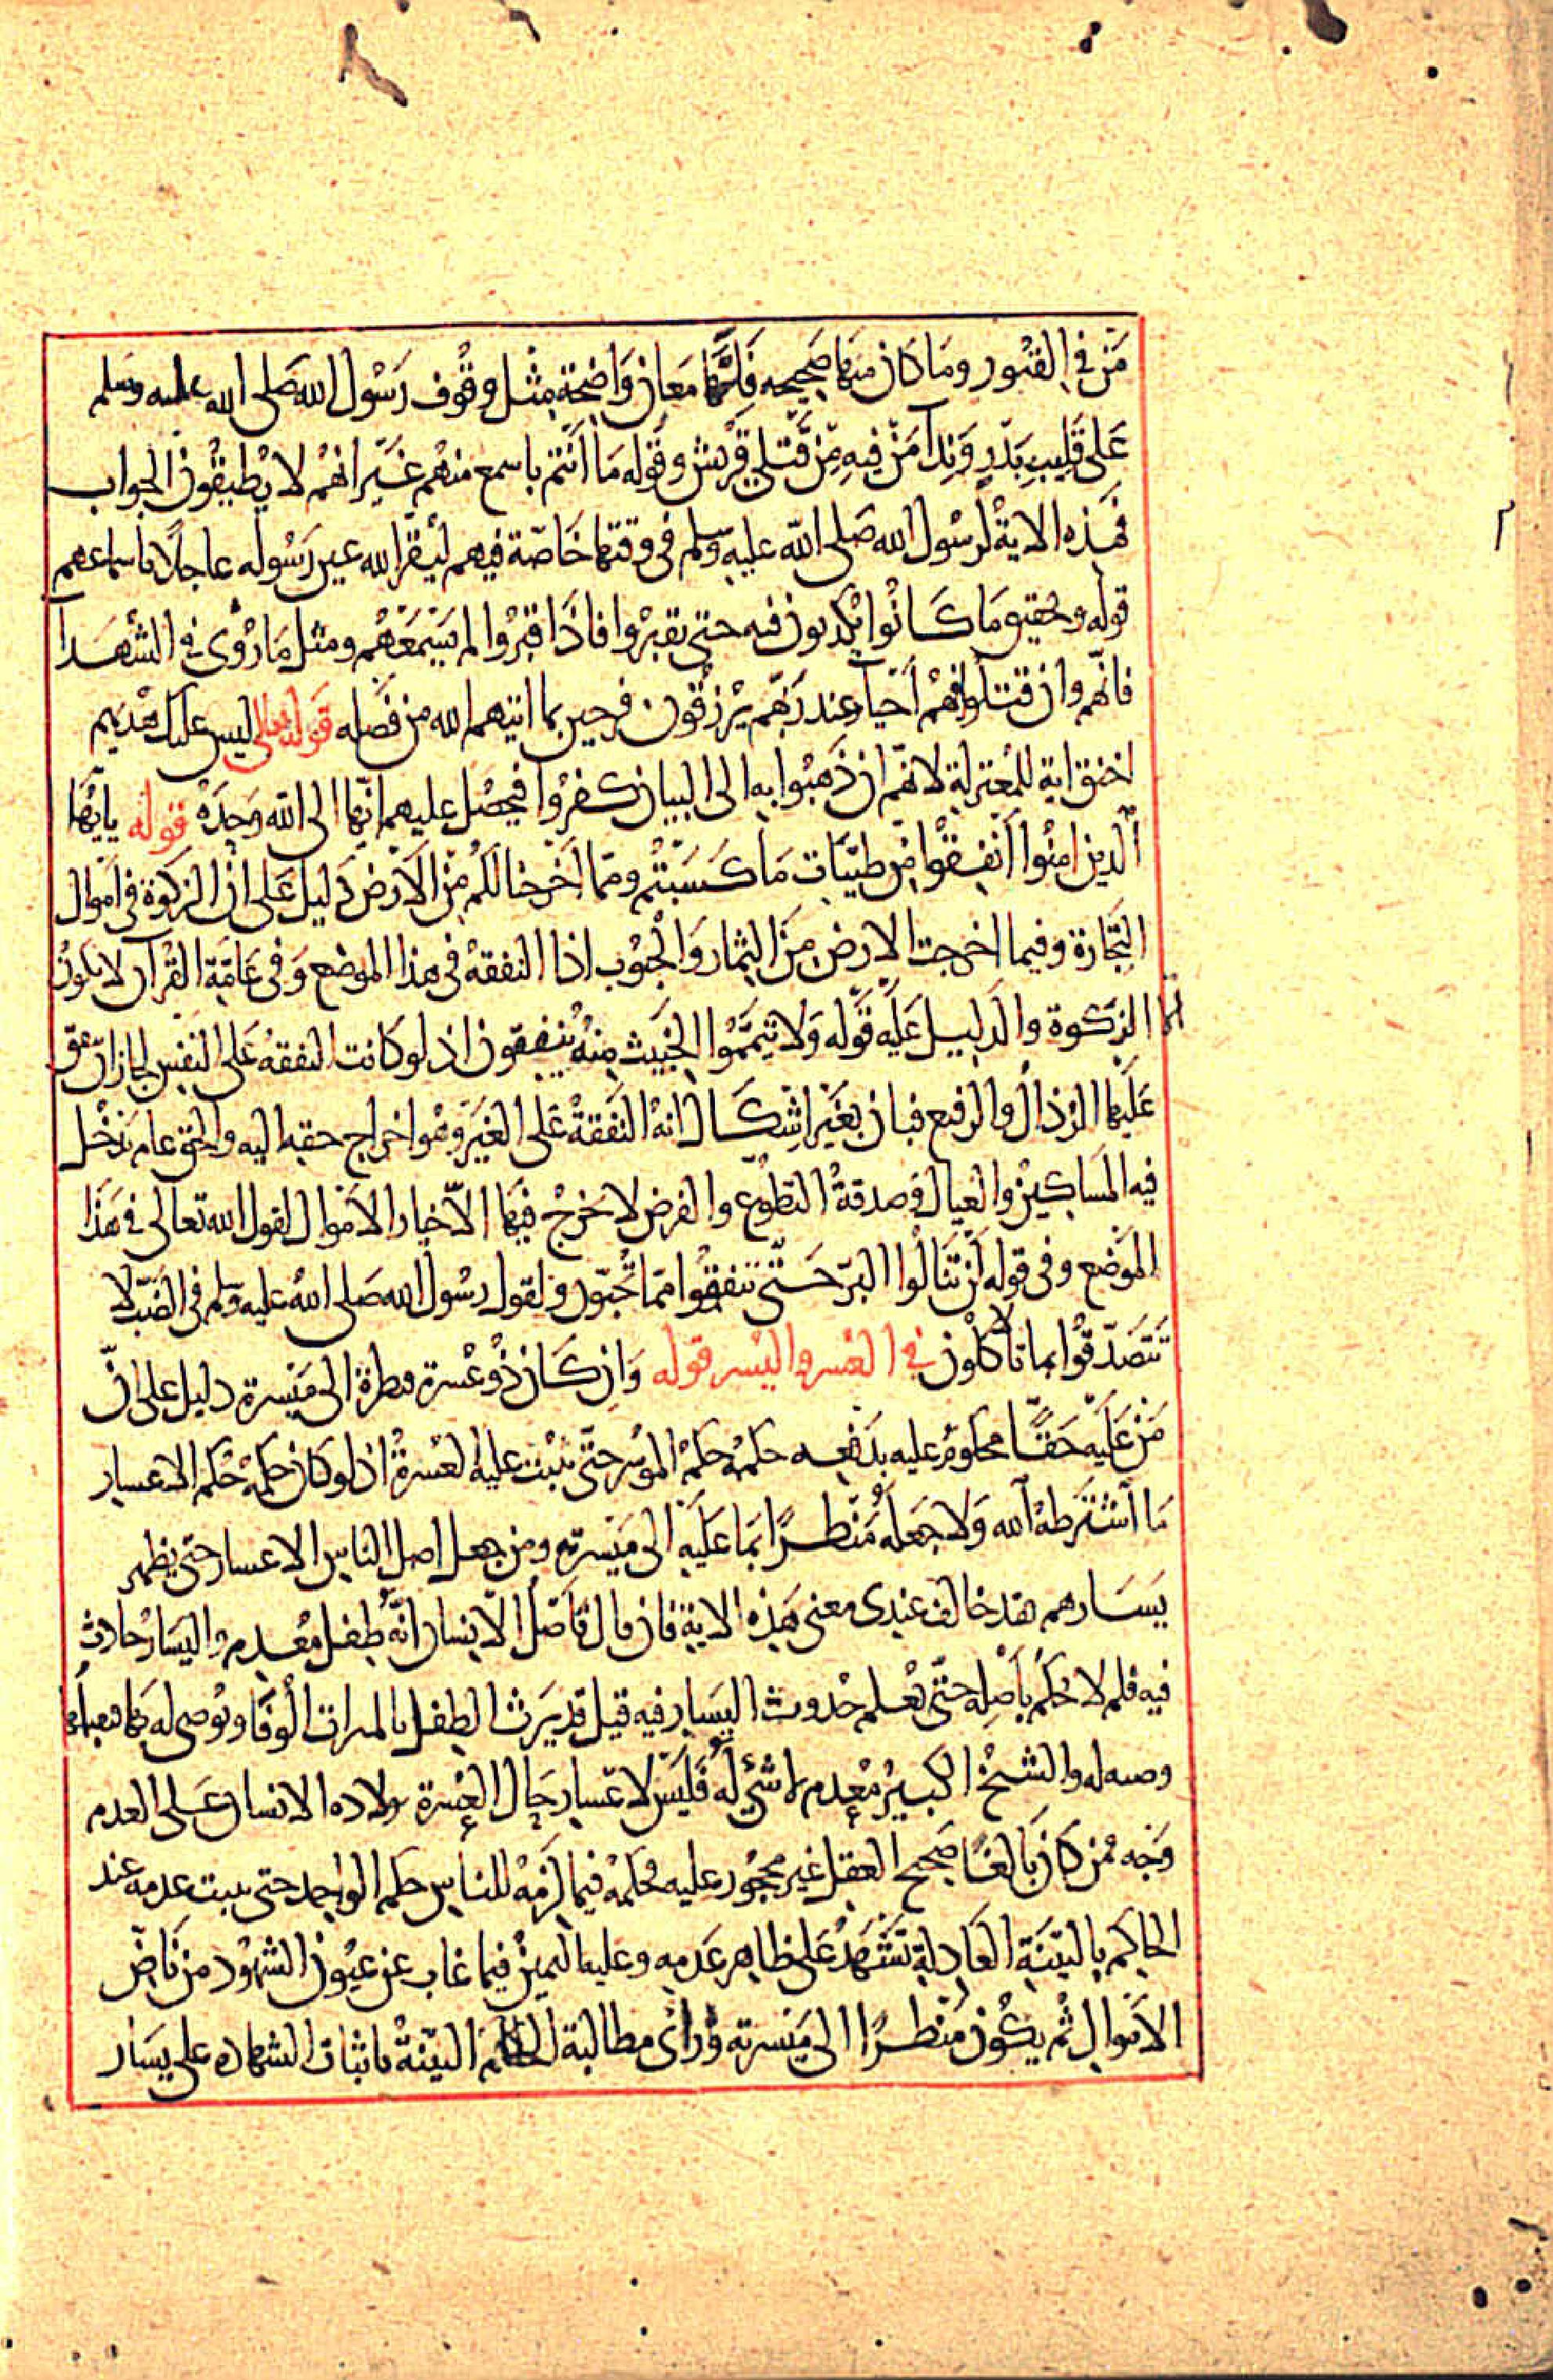 من في القبور وما كان منها صحيحه فلها معان واضحة مثل وقوف رسول الله صلى الله عليه وسلم
على قليب بدر وندا من فيه من قتلى قريش وقوله ما انتم باسمع منهم غير انهم لا يطيقون الجواب
فهذه الاية لرسول الله صلى الله عليه وسلم في وقتها خاصة فيهم ليقر الله عين رسوله عاجلا باسماعهم
قوله وتحقيق ما كانوا يكذبون فيه حتى يقبروا فاذا قبروا لم يسمعهم ومثل ما روى في الشهدا
فانهم وان قتلوا فهم احياء عند ربهم يرزقون فرحين بما اتيهم الله من فضله قوله تعالى ليس عليك هديهم
اخنق اية للمعتزلة لانهم ان ذهبوا به الى البيان كفروا فيحصل عليهم انها الى الله وحده قوله يايها
الذين امنوا انفقوا من طيبات ما كسبتم ومما اخرجنا لكم من الارض دليل على ان الزكوة في اموال
التجارة وفيما اخرجت الارض من الثمار والحبوب اذا النفقة في هذا الموضع وفي عامة القرآن لا يكون
الا الزكوة والدليل عليه قوله ولا تيمموا الخبيث منه تنفقون اذ لو كانت النفقة على النفس لجاز ان ينفق
عليها الرذال والرفيع فبان بغير اشكال انه النفقة على الغير وهو اخراج حقه اليه والحق عام يدخل
فيه المساكين والعيال في صدقة التطوع والفرض لا يخرج فيها الا خيار الاموال لقول الله تعالى في هذا
الموضع وفي قوله لن تنالوا البر حتى تنفقوا مما تحبون ولقول رسول الله صلى الله عليه وسلم في الضب لا
تتصدقوا بما لا تأكلون في العسر واليسر قوله وان كان ذو عسرة فنظرة الى ميسرة دليل على ان
من عليه حقا محكوم عليه بدفعه حكمه حكم الموسر حتى تثبت عليه العسرة اذ لو كان حكمه حكم الاعسار
ما اشترطه الله ولا جعله منظرا بما عليه الى ميسرته ومن جعل اصل الناس الاعسار حتى يظهر
يسارهم فقد خالف عندى معنى هذه الاية فان قال قائل اصل الانسان انه طفل معدم واليسار حادث
فيه فلم لا نحكم باصله حتى نعلم حدوث اليسار فيه قيل قد يرث الطفل بالميراث الوفا ويوصى له بها فيقبلها
وصيه له والشيخ الكبير معدم لا شيء له فليس لاعسار حال العسرة ولاده الانسان على العدم
وجه فمن كان بالغا صحيح العقل غير محجور عليه فحكمه فيما لزمه للناس حكم الواجد حتى يثبت عدمه عند
الحاكم بالبينة العادلة تشهد على ظاهر عدمه وعليه اليمين فيما غاب عن عيون الشهود من ناض
الاموال ثم يكون منظرا الى ميسرته ورأى مطالبة الحاكم البينة باثبات الشهادة على يسار